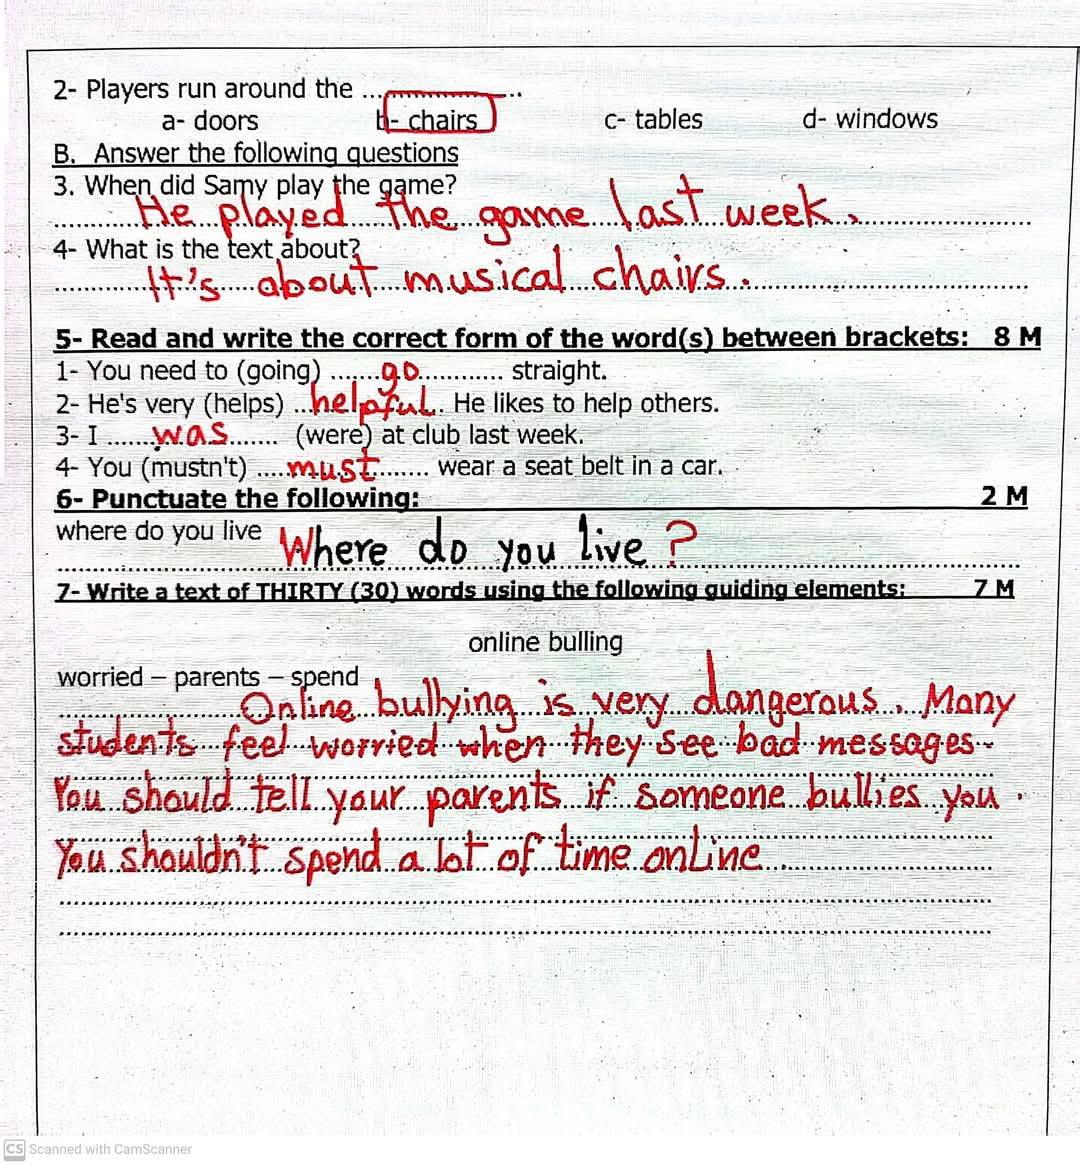 2- Players run around the ........................
a- doors b- chairs c- tables d- windows
B. Answer the following questions
3. When did Samy play the game?
He played the game last week.
4- What is the text about?
It's about musical chairs.
5- Read and write the correct form of the word(s) between brackets: 8 M
1- You need to (going) .......go............ straight.
2- He's very (helps) ...helpful.. He likes to help others.
3- I ......was....... (were) at club last week.
4- You (mustn't) .....must....... wear a seat belt in a car.
6- Punctuate the following: 2 M
where do you live Where do you live ?
7- Write a text of THIRTY (30) words using the following guiding elements: 7 M
online bulling
worried – parents – spend
Online bullying is very dangerous. Many
students feel worried when they see bad messages.
You should tell your parents if someone bullies you.
You shouldn't spend a lot of time online.
CS Scanned with CamScanner